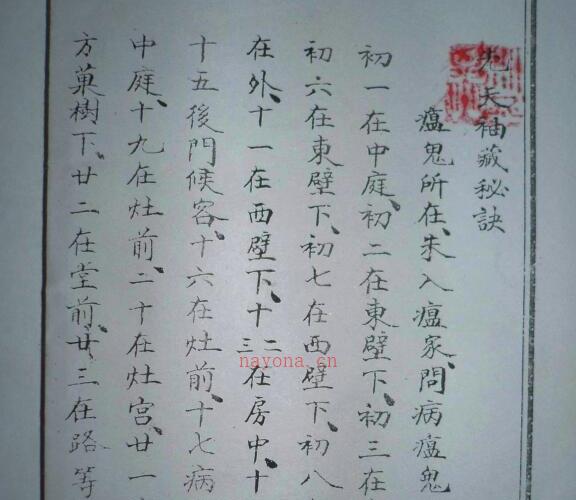 先天袖藏秘訣
瘟鬼所在、未入瘟家、問病瘟鬼
初一在中庭、初二在東壁下、初三在
初六在東壁下、初七在西壁下、初八
在外、十一在西壁下、十二三在房中、十
十五後門候客、十六在灶前、十七病
中庭、十九在灶前、二十在灶宮、廿一
方菓樹下、廿二在堂前、廿三在路等
nayona.cn